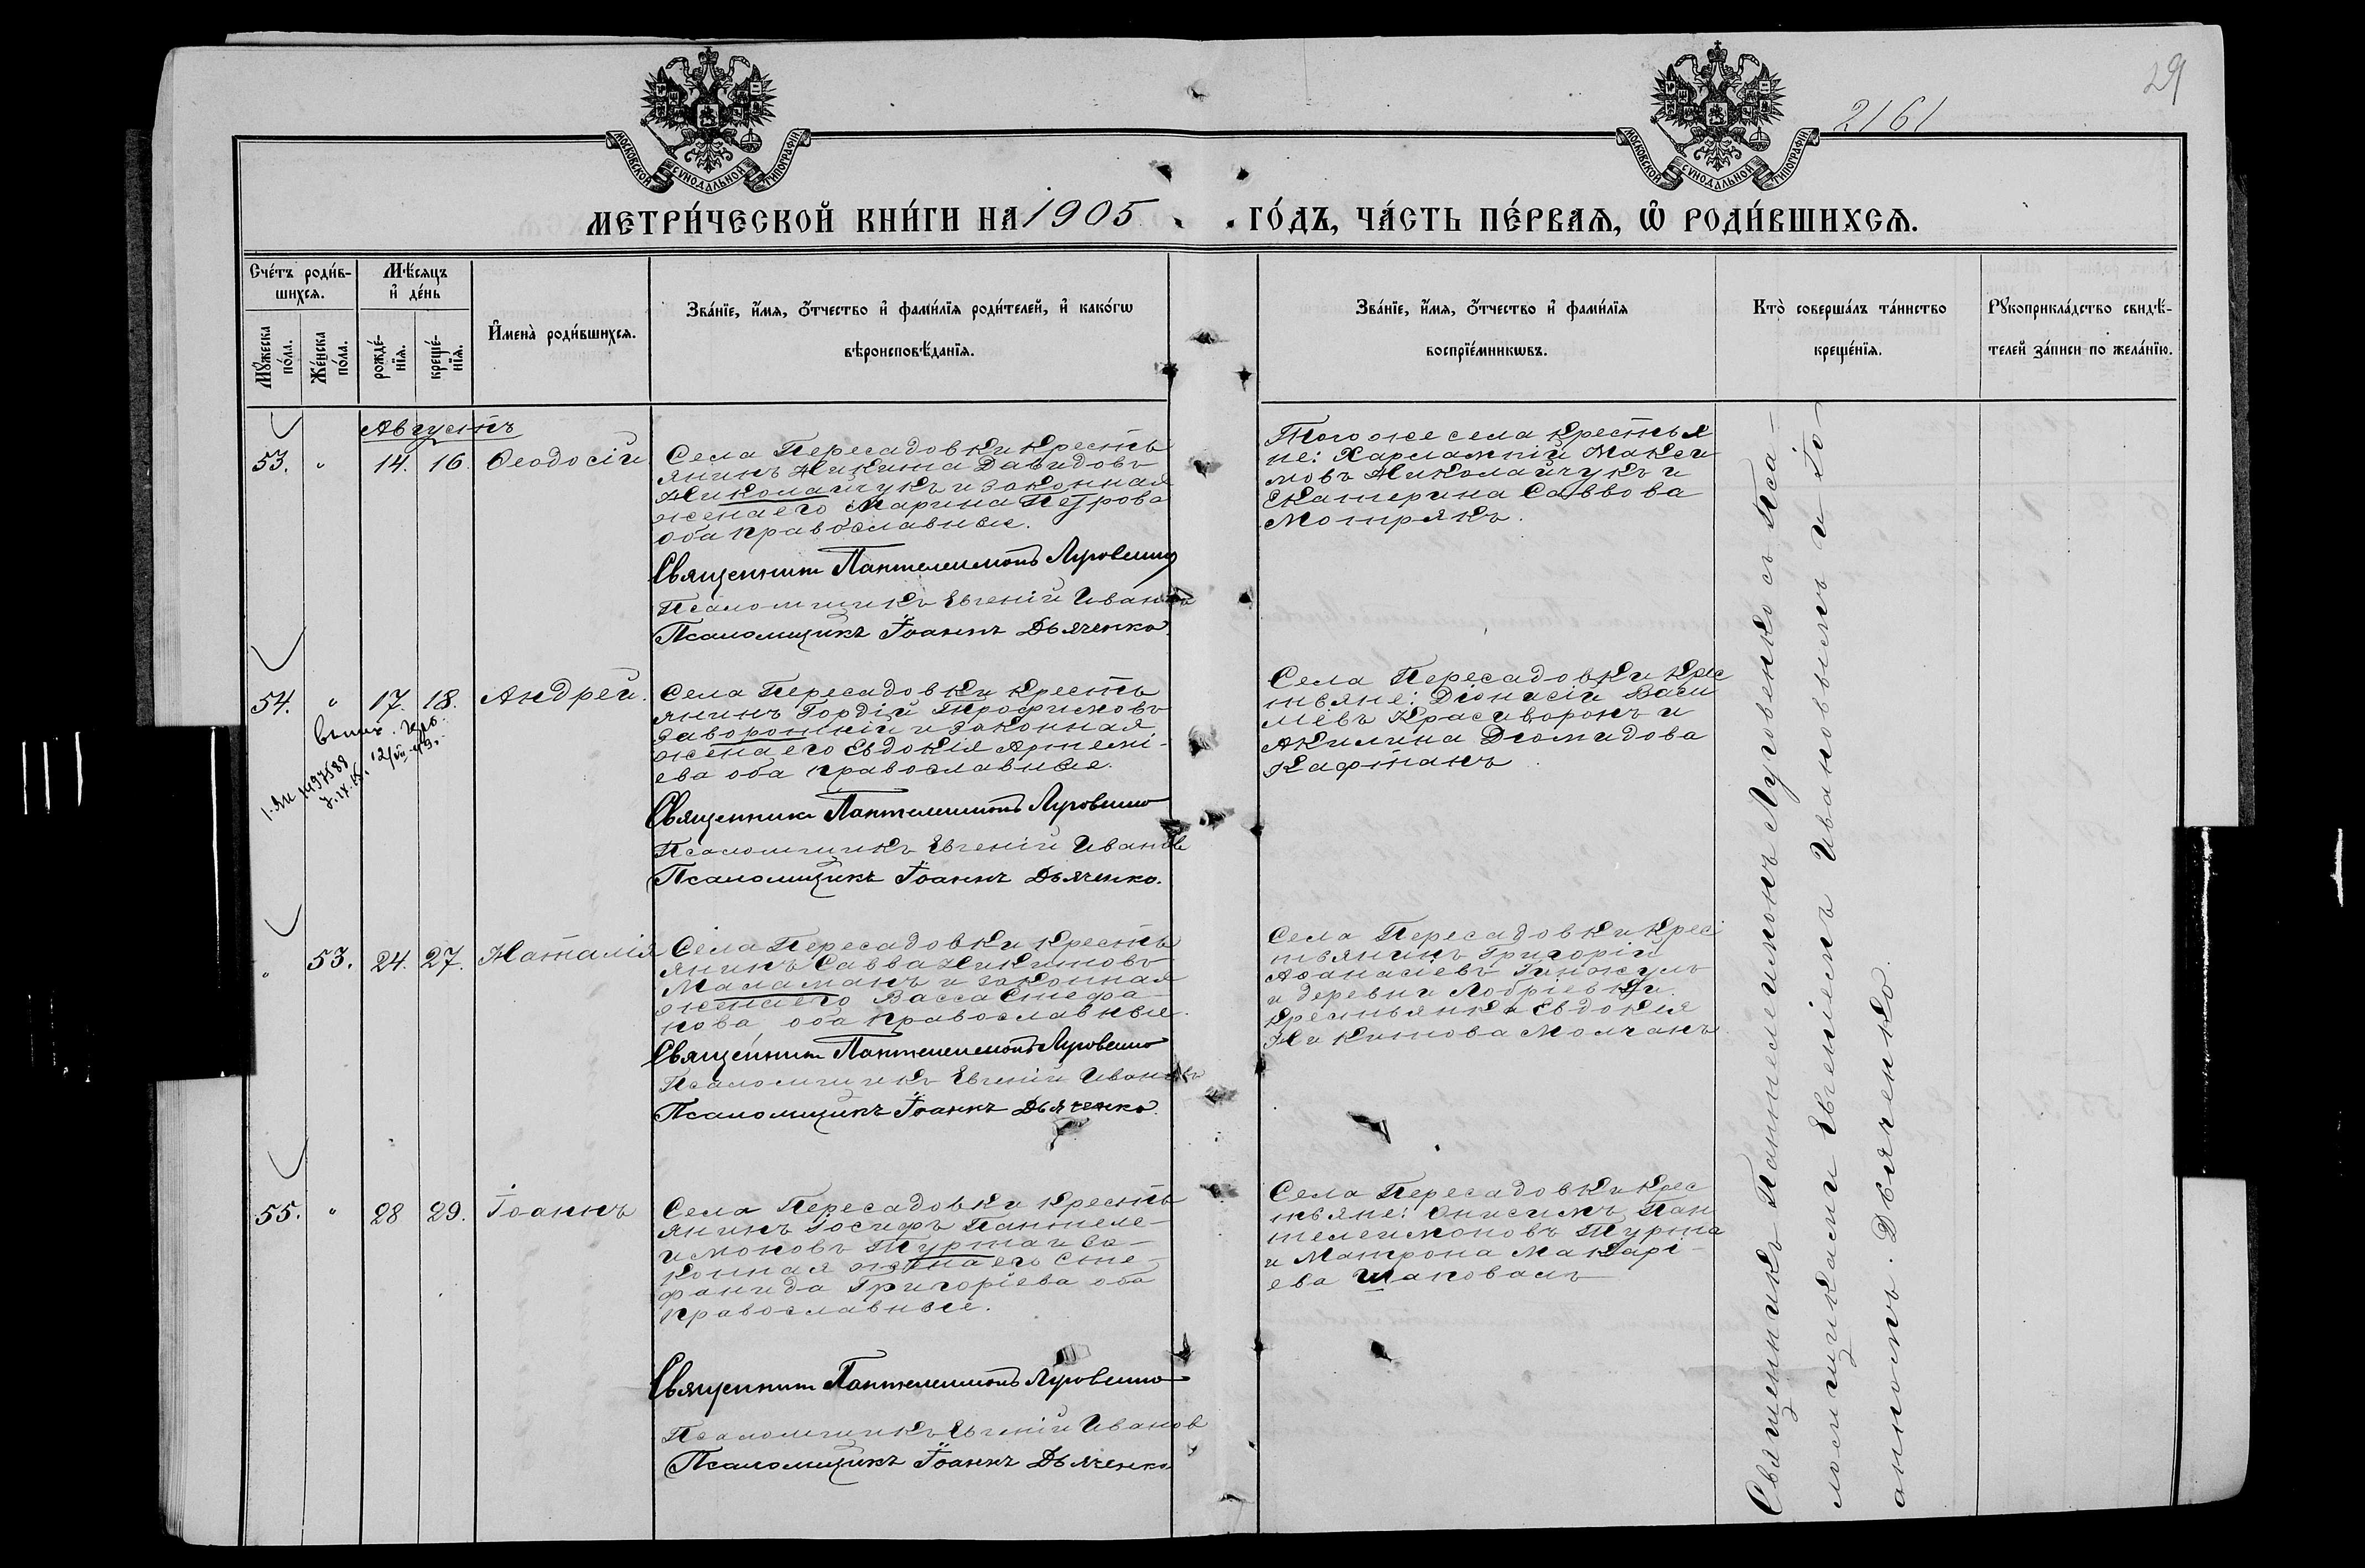 29
2161
МОСКОВСКОЙ СѴНОДАЛЬНОЙ ТИПОГРАФІИ
МОСКОВСКОЙ СѴНОДАЛЬНОЙ ТИПОГРАФІИ
МЕТРИ́ЧЕСКОЙ КНИ́ГИ НА 1905 ГО́ДЪ, ЧА́СТЬ ПЕ́РВАѦ, Ѡ҆ РОДИ́ВШИХСѦ.
Сче́тъ роди́в-
шихсѧ.
Мꙋ́жеска
по́ла.
Же́нска
по́ла.
Мѣ́сѧцъ
и҆ де́нь
рожде́-
нїѧ.
креще́-
нїѧ.
И҆мена̀ роди́вшихсѧ.
Зва́нїе, и҆́мѧ, ѻ҆́тчество и҆ фами́лїѧ роди́телей, и҆ како́гѡ
вѣроисповѣ́данїѧ.
Зва́нїе, и҆́мѧ, ѻ҆́тчество и҆ фами́лїѧ
воспрїе́мникѡвъ.
Кто̀ соверша́лъ та́инство
креще́нїѧ.
Рꙋкоприкла́дство свидѣ́-
телей за́писи по жела́нїю.
Августъ
53. " 14. 16. Ѳеодосій
Села Пересадовки кресть
янинъ Никита Давидовъ
Николайчукъ и законная
жена его Марина Петрова
оба православные.
Священникъ Пантелеимонъ Луговенко
Псаломщикъ Евгеній Ивановъ
Псаломщикъ Іоаннъ Дьяченко.
Того же села крестья
не: Харлампій Макси
мовъ Николайчукъ и
Екатерина Саввова
Мотрякъ.
54. " 17. 18. Андрей.
Села Пересадовки кресть
янинъ Гордій Трофимовъ
Заворотній и законная
жена его Евдокія Артемі-
ева оба православные.
Священникъ Пантелеимонъ Луговенко
Псаломщикъ Евгеній Ивановъ
Псаломщикъ Іоаннъ Дьяченко.
Села Пересадовки крес
тьяне: Діонисій Васи
ліевъ Красиворонъ и
Акилина Діомидова
Кафтанъ.
" 53. 24. 27. Наталія
Села Пересадовки кресть
янинъ Савва Никитовъ
Маламанъ и законная
жена его Васса Стефа-
нова, оба православные.
Священникъ Пантелеимонъ Луговенко
Псаломщикъ Евгеній Ивановъ
Псаломщикъ Іоаннъ Дьяченко.
Села Пересадовки крес
тьянинъ Григорій
Аѳанасіевъ Гинжулъ
и деревни Лобріевки
крестьянка Евдокія
Никитова Молчанъ.
55. " 28 29. Іоаннъ
Села Пересадовки кресть
янинъ Іосифъ Пантеле-
имоновъ Турта и за-
конная жена его Сте-
фанида Григоріева оба
православные.
Священникъ Пантелеимонъ Луговенко
Псаломщикъ Евгеній Ивановъ
Псаломщикъ Іоаннъ Дьяченко
Села Пересадовки крес
тьяне: Онисимъ Пан
телеимоновъ Турта
и Матрона Макарі-
ева Шаповалъ
Священникъ Пантелеимонъ Луговенко съ Пса-
ломщиками Евгеніемъ Ивановымъ и Іо-
анномъ Дьяченко.